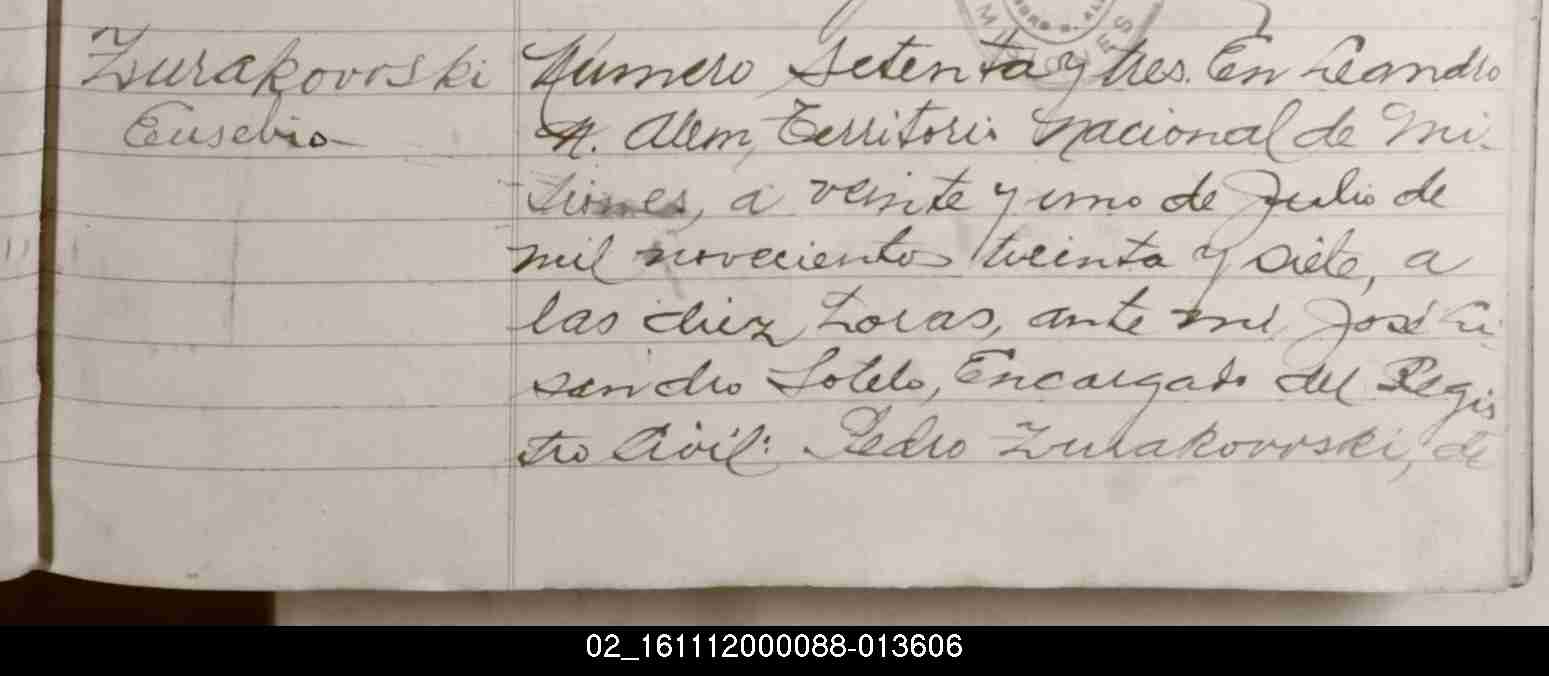 Zurakovoski
Eusebio
Número Setenta y tres. En Leandro
N. Alem, Territorio Nacional de Mi-
siones, a veinte y uno de Julio de
mil novecientos treinta y siete, a
las diez horas, ante mi José Li-
sandro Sotelo, Encargado del Regis
tro Civil: Pedro Zurakovoski, de
02_161112000088-013606